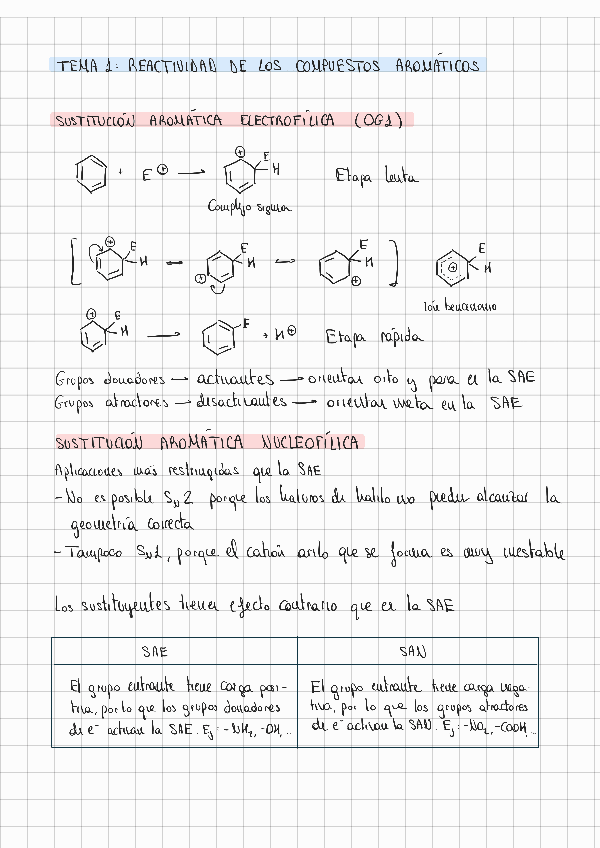 TEMA 1: REACTIVIDAD DE LOS COMPUESTOS AROMÁTICOS
SUSTITUCIÓN AROMÁTICA ELECTROFÍLICA (OG1)
+ E⊕ → ⊕ E H Etapa lenta
Complejo sigma
[ ⊕ E H ↔ ⊕ E H ↔ ⊕ E H ] ⊕ E H
Ión bencenonio
⊕ E H → E + H⊕ Etapa rápida
Grupos donadores → activantes → orientan orto y para en la SAE
Grupos atractores → desactivantes → orientan meta en la SAE
SUSTITUCIÓN AROMÁTICA NUCLEOFÍLICA
Aplicaciones más restringidas que la SAE
- No es posible SN2 porque los haluros de halilo no pueden alcanzar la
geometría correcta
- Tampoco SN1, porque el catión arilo que se forma es muy inestable
Los sustituyentes tienen efecto contrario que en la SAE
SAE
SAN
El grupo entrante tiene carga posi-
tiva, por lo que los grupos donadores
de e⁻ activan la SAE. Ej: -NH₂, -OH, ...
El grupo entrante tiene carga nega-
tiva, por lo que los grupos atractores
de e⁻ activan la SAN. Ej: -NO₂, -COOH, ...